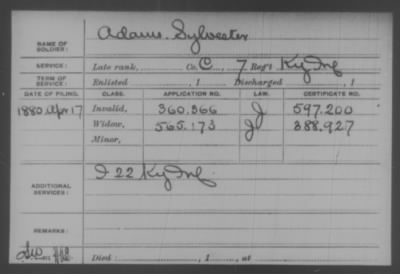 Adams, Sylvester
NAME OF SOLDIER:
SERVICE: Late rank, Co. C, 7 Reg't Ky Inf
TERM OF SERVICE: Enlisted , 1 Discharged , 1
DATE OF FILING. CLASS. APPLICATION NO. LAW. CERTIFICATE NO.
1880 Apr 17 Invalid, 360.366 J 597.200
Widow, 565.173 J 388.927
Minor,
ADDITIONAL SERVICES: I 22 Ky Inf
REMARKS:
Died : , 1 , at